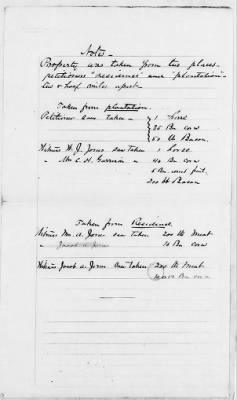 Notes -
Property was taken from two places
petitioners "residence" and "plantation"
two & half miles apart
Taken from plantation.
Petitioner saw taken - 1 horse
25 Bu corn
50 lb Bacon.
Witness H. J. Jones saw taken 1 horse
" Mr C. H. Garrison " 40 Bu corn
5 Bu
200 lb Bacon
Taken from Residence
Witness Wm. A. Jones saw taken 200 lb meat
" Jacob A. Jones 10 Bu corn
Witness Jacob A. Jones saw taken 200 lb meat
Bu corn